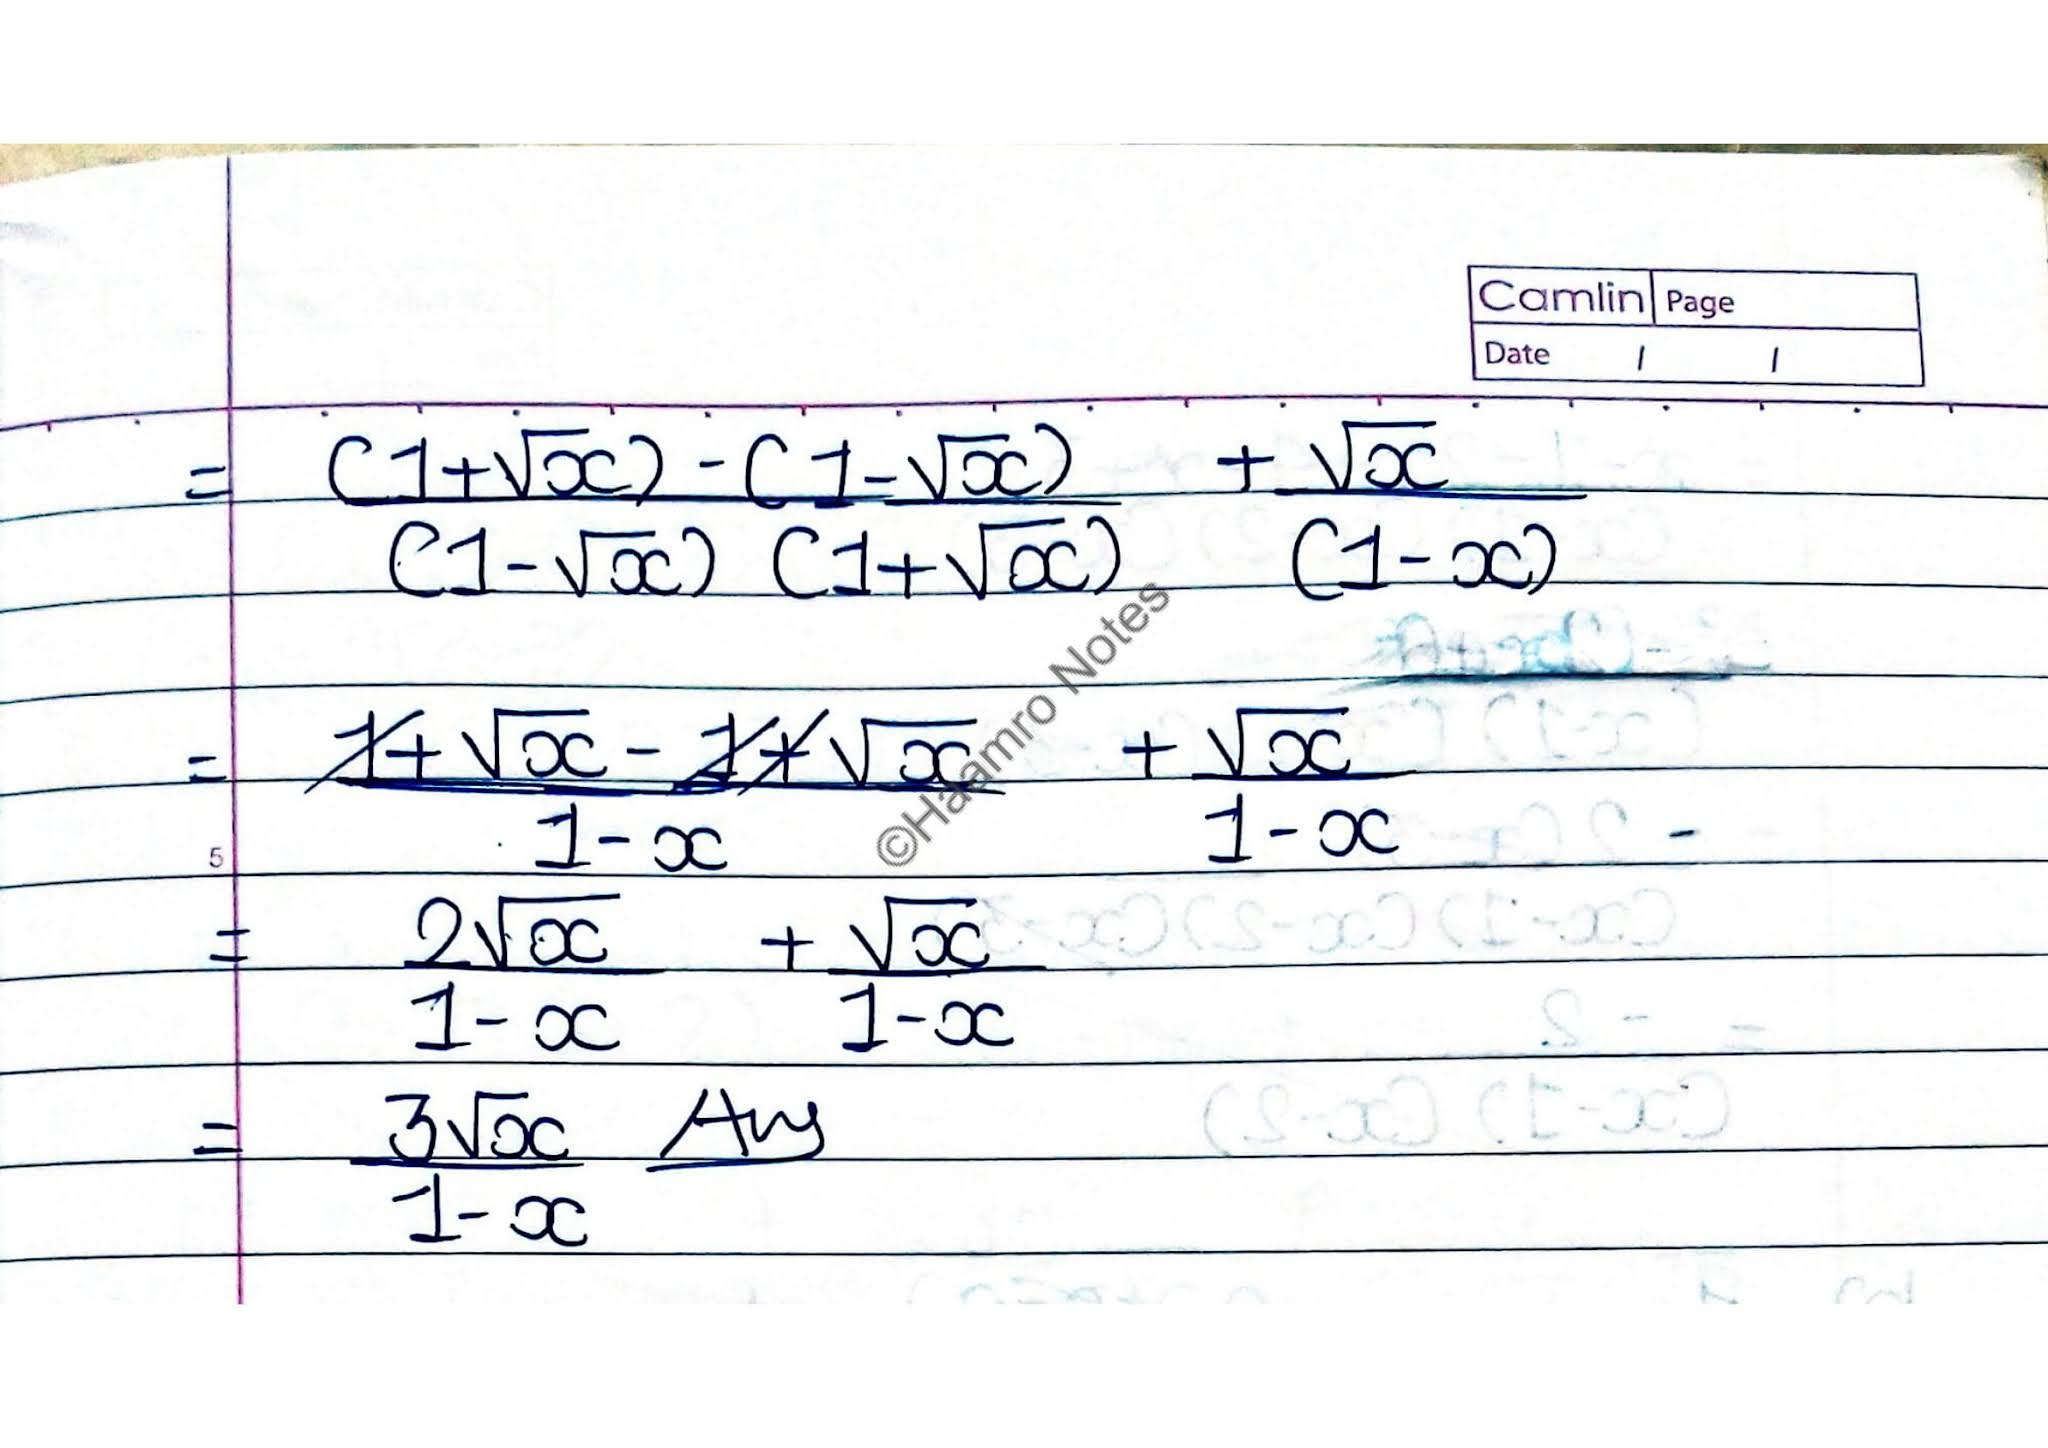 Camlin Page
Date / /
= (1+√x) - (1-√x) + √x
(1-√x) (1+√x) (1-x)
= 1+√x - 1+√x + √x
1-x 1-x
5
= 2√x + √x
1-x 1-x
= 3√x Ans
1-x
©Haamro Notes